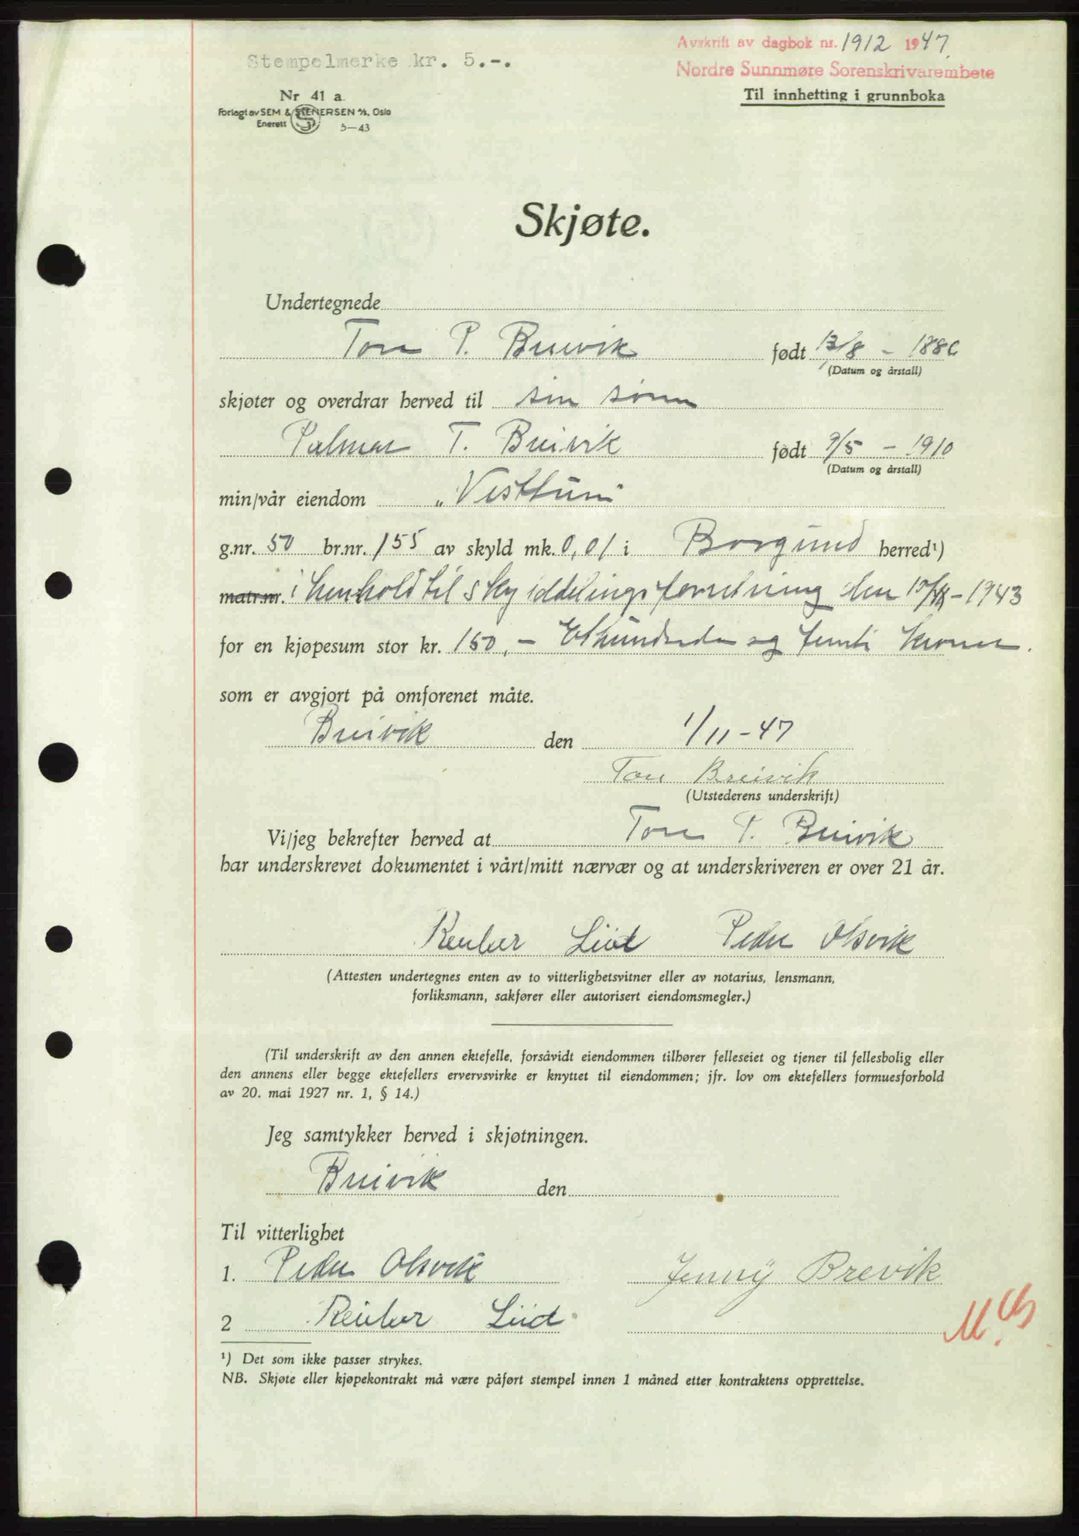 Avskrift av dagbok nr. 1912 1947
Stempelmerke kr. 5.-.
Nordre Sunnmøre Sorenskrivarembete
Nr 41 a.
Til innhetting i grunnboka
Forlagt av SEM & STENERSEN A/S, Oslo
Enerett 5—43
Skjøte.
Undertegnede
Tore P. Breivik født 13/8 - 1886
(Datum og årstall)
skjøter og overdrar herved til sin sønn
Palmar T. Breivik født 9/5 - 1910
(Datum og årstall)
min/vår eiendom "Vesttun"
g.nr. 50 br.nr. 155 av skyld mk. 0,01 i Borgund herred¹)
matr.nr. i henhold til skylddelingsforretning den - 1943
for en kjøpesum stor kr. 150,- Ethundrede og femti kroner.
som er avgjort på omforenet måte.
Breivik den 1/11-47
Tore Breivik
(Utstederens underskrift)
Vi/jeg bekrefter herved at Tore P. Breivik
har underskrevet dokumentet i vårt/mitt nærvær og at underskriveren er over 21 år.
Reidar Liid Peder Olsvik
(Attesten undertegnes enten av to vitterlighetsvitner eller av notarius, lensmann,
forliksmann, sakfører eller autorisert eiendomsmegler.)
(Til underskrift av den annen ektefelle, forsåvidt eiendommen tilhører felleseiet og tjener til fellesbolig eller
den annens eller begge ektefellers ervervsvirke er knyttet til eiendommen; jfr. lov om ektefellers formuesforhold
av 20. mai 1927 nr. 1, § 14.)
Jeg samtykker herved i skjøtningen.
Breivik den
Til vitterlighet
1. Peder Olsvik Jenny Brevik
2 Reidar Liid
¹) Det som ikke passer strykes.
NB. Skjøte eller kjøpekontrakt må være påført stempel innen 1 måned etter kontraktens opprettelse.